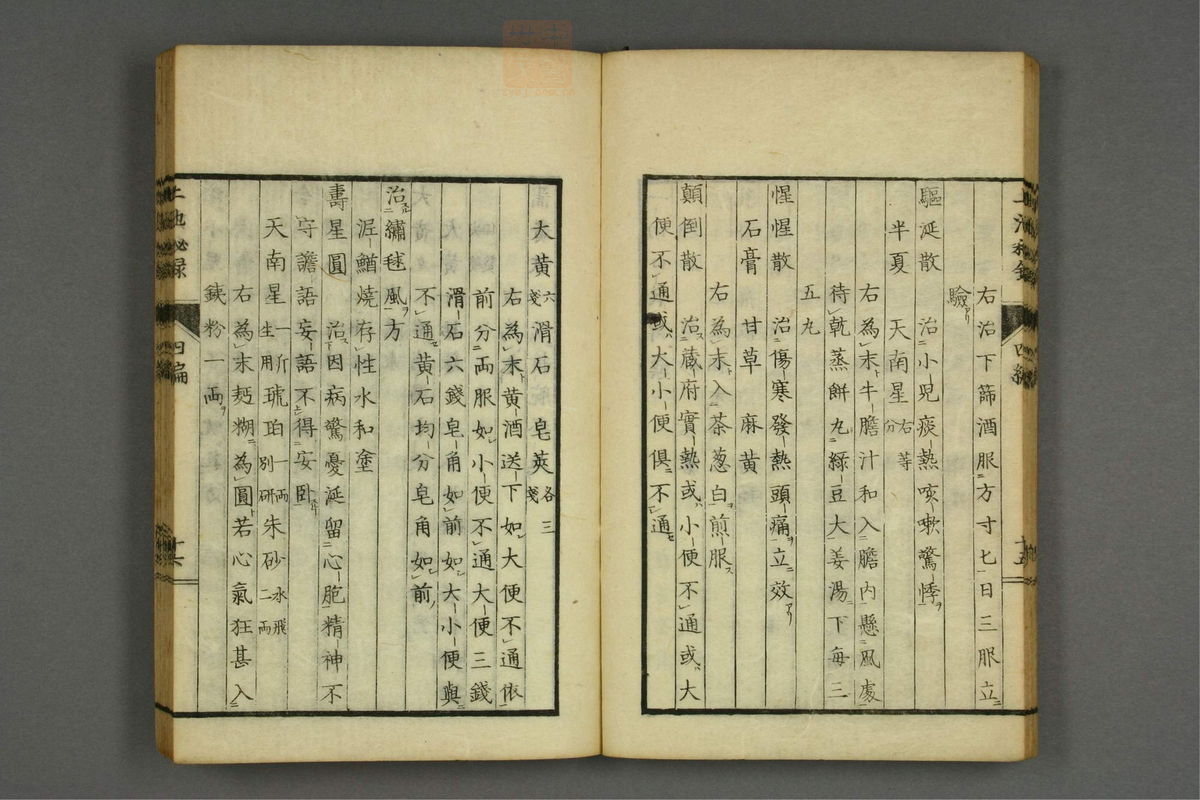 右治下篩酒服方寸匕日三服立
驗
驅涎散 治小兒痰熱咳嗽驚悸
半夏 天南星右等分
右為末牛膽汁和入膽内懸風處
待乾蒸餅丸綠豆大姜湯下每三
五丸
惺惺散 治傷寒發熱頭痛立效
石膏 甘草 麻黄
右為末入茶葱白煎服
顛倒散 治蔵府實熱或小便不通或大
便不通或大小便俱不通
大黄六錢滑石皂莢各三錢
右為末黄酒送下如大便不通依
前分両服如小便不通大便三錢
滑石六錢皂角如前如大小便與
不通黄石均分皂角如前
治繡毬風方
泥鰌燒存性水和塗
壽星圓 治因病驚憂涎留心胞精神不
守譫語妄語不得安卧
天南星一斤生用琥珀一両別研朱砂水飛二両
右為末麪糊為圓若心氣狂甚入
鉄粉一両
四編
十六
四編